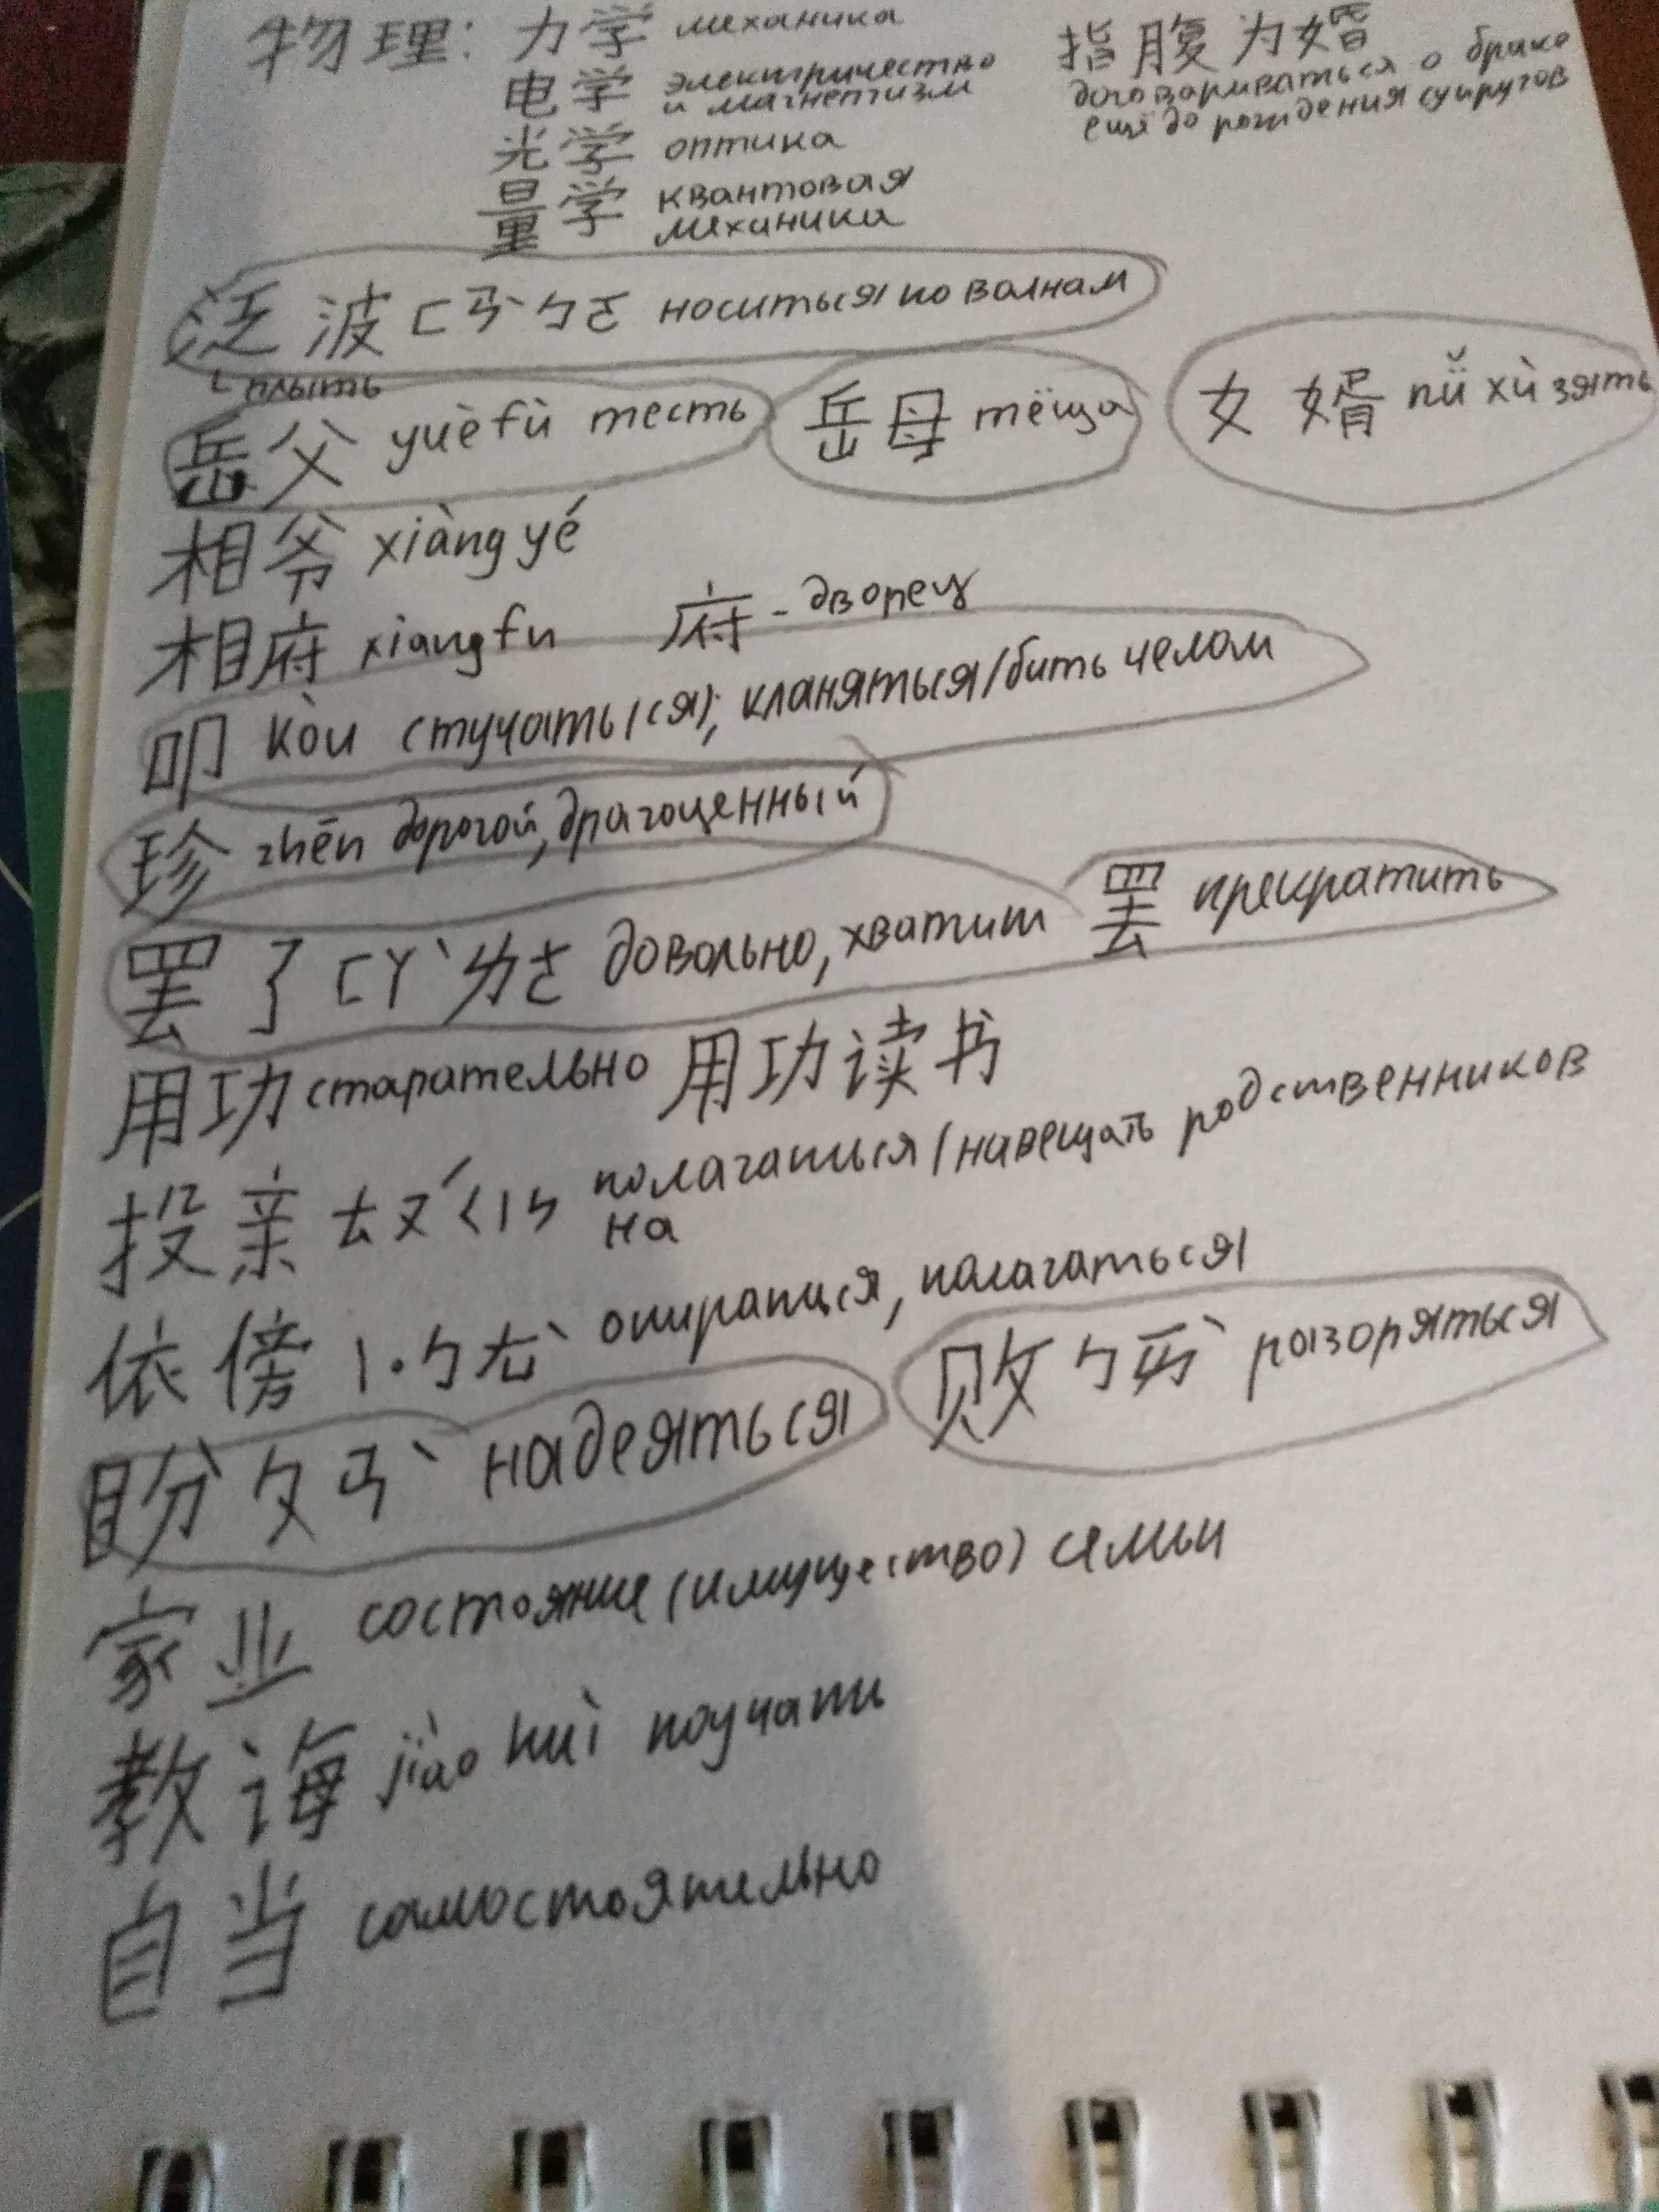 物理: 力学 механика
电学 электричество и магнетизм
光学 оптика
量学 квантовая механика
指腹为婚
договариваться о браке
ещё до рождения супругов
泛波 ㄈㄢˋㄅㄛ носиться по волнам
плыть
岳父 yuèfù тесть 岳母 тёща 女婿 nǚ xù зять
相爷 xiàng yé
相府 xiangfu 府 - дворец
叩 kòu стучать(ся); кланяться/бить челом
珍 zhēn дорогой, драгоценный
罢了 ㄈㄚˋㄌㄜ довольно, хватит 罢 прекратить
用功 старательно 用功读书
投亲 ㄊㄡˊㄑㄧㄣ полагаться/навещать родственников
на
依傍 ㄧ·ㄅㄤˋ опираться, полагаться
盼 ㄆㄢˋ надеяться 败 ㄅㄞˋ разоряться
家业 состояние (имущество) семьи
教诲 jiào huì поучать
自当 самостоятельно